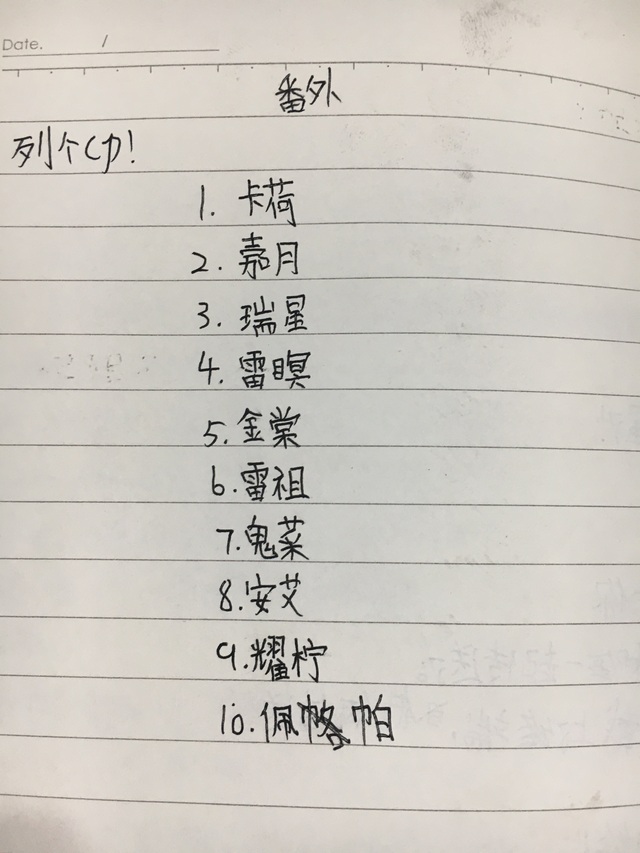 Date. /
番外
列个CP!
1. 卡荷
2. 嘉月
3. 瑞星
4. 雷瞑
5. 金棠
6. 雷祖
7. 鬼菜
8. 安艾
9. 耀柠
10. 佩帕